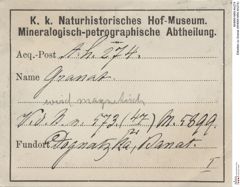 K. k. Naturhistorisches Hof-Museum.
Mineralogisch-petrographische Abtheilung.
Acq.-Post A. h. 274.
Name Granat.
wird magnetisch
V. d. N. n. 573. (47) M. 5899.
Fundort Dognatzka, Banat.
I